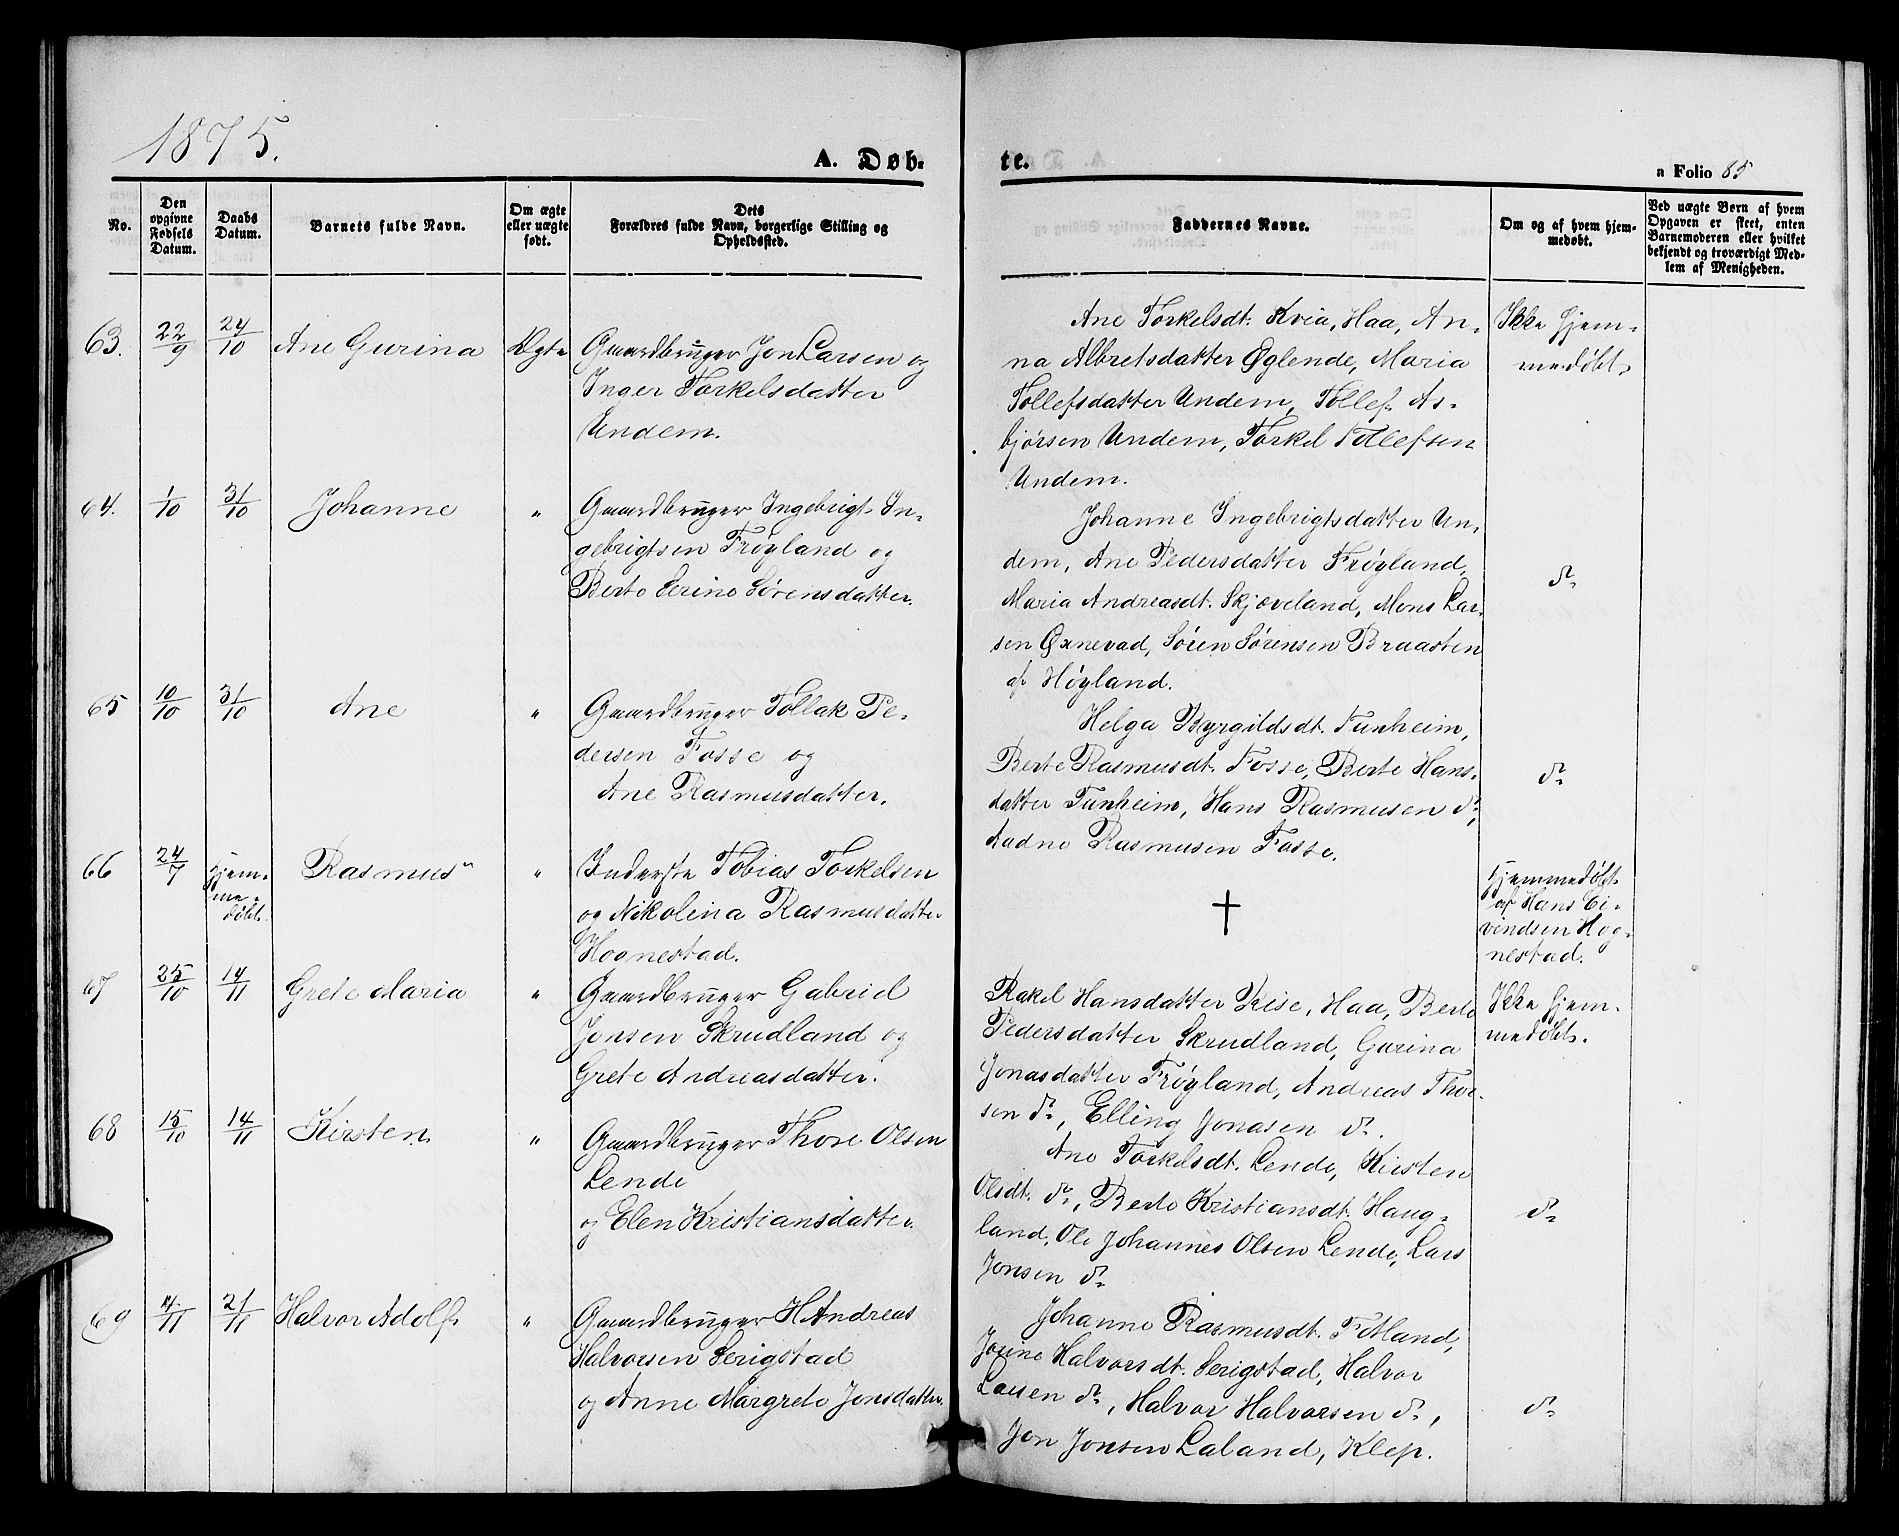 1875.
A. Døb-
te.
a Folio 85
No.
Den opgivne Fødsels Datum.
Daabs Datum.
Barnets fulde Navn.
Om ægte eller uægte født.
Dets Forældres fulde Navn, borgerlige Stilling og Opholdssted.
Faddernes Navne.
Om og af hvem hjemmedøbt.
Ved uægte Børn af hvem Opgaven er skeet, enten Barnemoderen eller hvilket bekjendt og troværdigt Medlem af Menigheden.
63. 22/9 24/10 Ane Gurina Ægte
Gaardbruger Jon Larsen og
Inger Torkelsdatter
Undem.
Ane Torkelsdt. Kvia, Haa, An-
na Albretsdatter Øglende, Maria
Tollefsdatter Undem, Tollef As-
bjørsen Undem, Torkel Tollefsen
Undem.
Ikke hjem-
medøbt.
64. 1/10 31/10 Johanne "
Gaardbruger Ingebrigt In-
gebrigtsen Frøyland og
Berte Serine Sørensdatter.
Johanne Ingebrigtsdatter Un-
dem, Ane Pedersdatter Frøyland,
Maria Andreasdt. Skjæveland, Mons Lar-
sen Øxnevad, Søren Sørensen Braasten
af Høyland.
do
65 10/10 31/10 Ane "
Gaardbruger Tollak Pe-
dersen Fosse og
Ane Rasmusdatter.
Helga Byrgildsdt. Tunheim,
Berte Rasmusdt. Fosse, Berte Hans-
datter Tunheim, Hans Rasmusen do,
Aadne Rasmusen Fosse.
do
66 24/7 Hjem-
me-
døbt.
Rasmus "
Inderste Tobias Torkelsen
og Nikolina Rasmusdatter
Hognestad.
†
Hjemmedøbt
af Hans Ei-
vindsen Hog-
nestad.
67 25/10 14/11 Grete Maria "
Gaardbruger Gabriel
Jonsen Skrudland og
Grete Andreasdatter.
Rakel Hansdatter Reise, Haa, Berte
Pedersdatter Skrudland, Gurina
Jonasdatter Frøyland, Andreas Thor-
sen do, Elling Jonasen do.
Ikke hjem-
medøbt.
68 15/10 14/11 Kirsten "
Gaardbruger Thore Olsen
Lende
og Elen Kristiansdatter.
Ane Torkelsdt. Lende, Kirsten
Olsdt. do, Berte Kristiansdt. Haug-
land, Ole Johannes Olsen Lende, Lars
Jonsen do
do
69 4/11 21/11 Halvor Adolf "
Gaardbruger H Andreas
Halvorsen Serigstad
og Anne Margrete Jonsdatter.
Johanne Rasmusdt. Fotland,
Josine Halvorsdt. Serigstad, Halvor
Larsen do, Halvor Halvorsen do,
Jon Jonsen Laland, Klep.
do